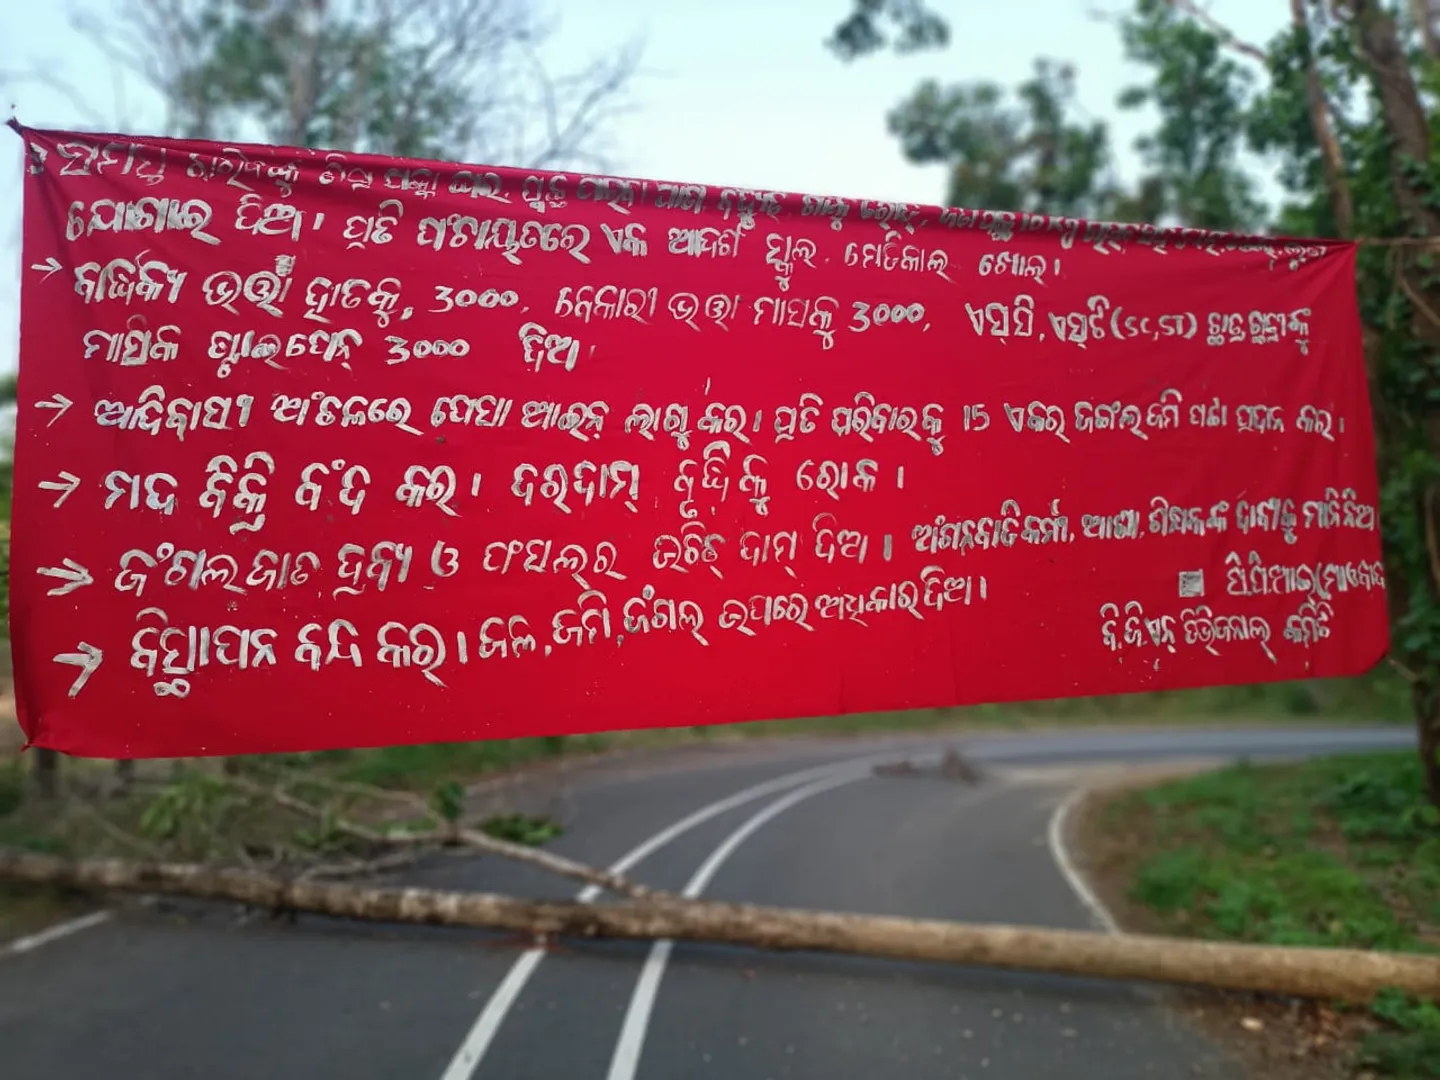 ସମସ୍ତ ଗରିବଙ୍କୁ
ଯୋଗାଇ ଦିଅ। ପ୍ରତି ପଂଚାୟତରେ ଏକ ଆଦର୍ଶ ସ୍କୁଲ. ମେଡିକାଲ ଖୋଲ।
→ ବାର୍ଦ୍ଧକ୍ୟ ଭତ୍ତା ହାତକୁ, 3000, ବେକାରୀ ଭତ୍ତା ମାସକୁ 3000, ଏସ୍‌ସି, ଏସ୍‌ଟି (SC,ST) ଛାତ୍ରଛାତ୍ରୀଙ୍କୁ
ମାସିକ ଷ୍ଟାଇପେନ୍ 3000 ଦିଅ।
→ ଆଦିବାସୀ ଅଂଚଳରେ ପେସା ଆଇନ୍ ଲାଗୁ କର। ପ୍ରତି ପରିବାରକୁ 15 ଏକର ଜଙ୍ଗଲ ଜମି ପଟ୍ଟା ପ୍ରଦାନ କର।
→ ମଦ ବିକ୍ରି ବଂଦ କର। ଦରଦାମ୍ ବୃଦ୍ଧିକୁ ରୋକ।
→ ଜଂଗଲ ଜାତ ଦ୍ରବ୍ୟ ଓ ଫସଲ୍‌ର ଉଚିତ୍ ଦାମ୍ ଦିଅ। ଅଂଗନବାଡିକର୍ମୀ, ଆଶା, ଶିକ୍ଷକଙ୍କ ଦାବୀକୁ ମାନିନିଅ
→ ବିସ୍ଥାପନ ବନ୍ଦ କର। ଜଳ, ଜମି, ଜଂଗଲ ଉପରେ ଅଧିକାର ଦିଅ।
ସି.ପି.ଆଇ(ମାଓବାଦୀ
ବି.ଜି.ଏନ୍ ଡିଭିଜନାଲ୍ କମିଟି